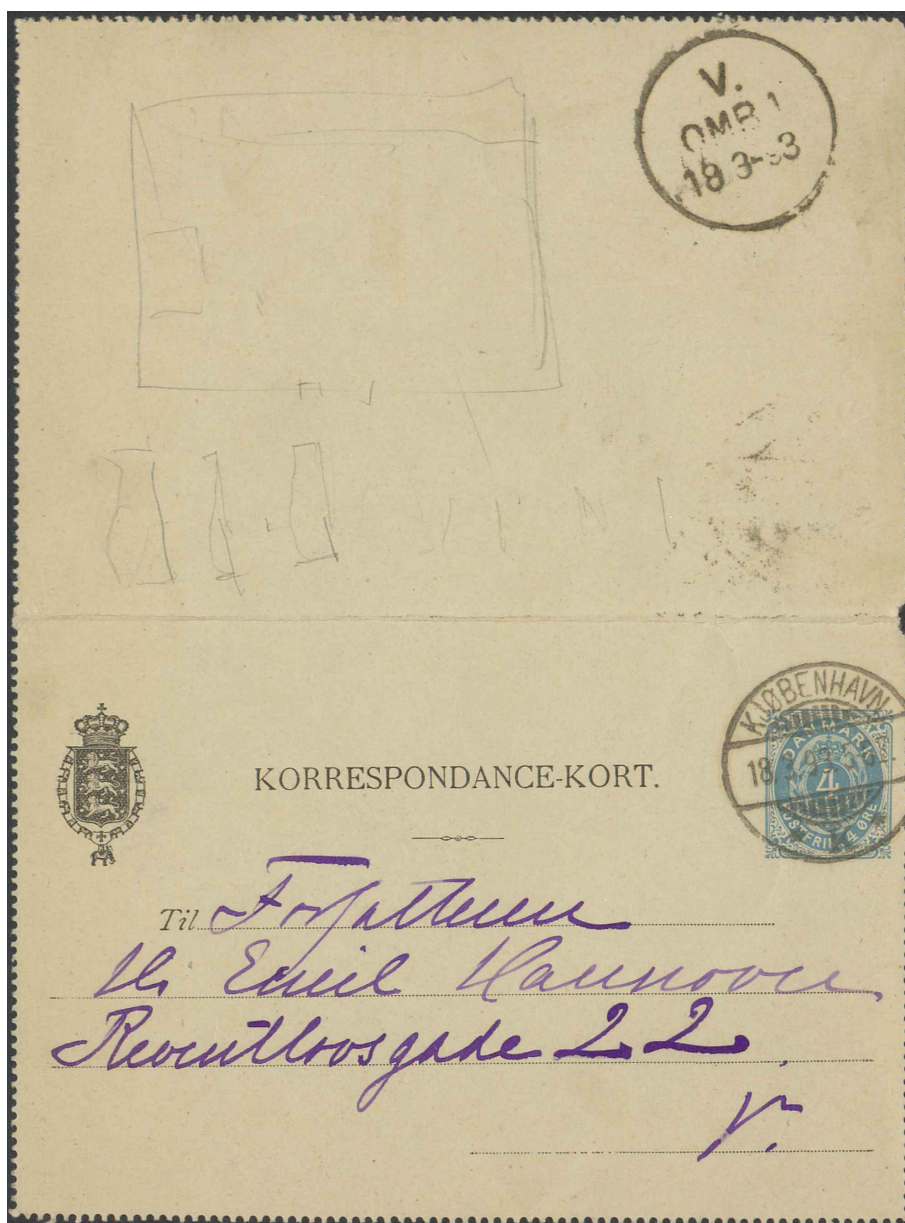 V.
OMB 1
18 3-93
KJØBENHAVN
18.3.93
DANMARK
4
POSTFRIM. 4 ØRE
K
KORRESPONDANCE-KORT.
Til Forfatteren
Hr Emil Hannover
Reventlovsgade 22.
V.